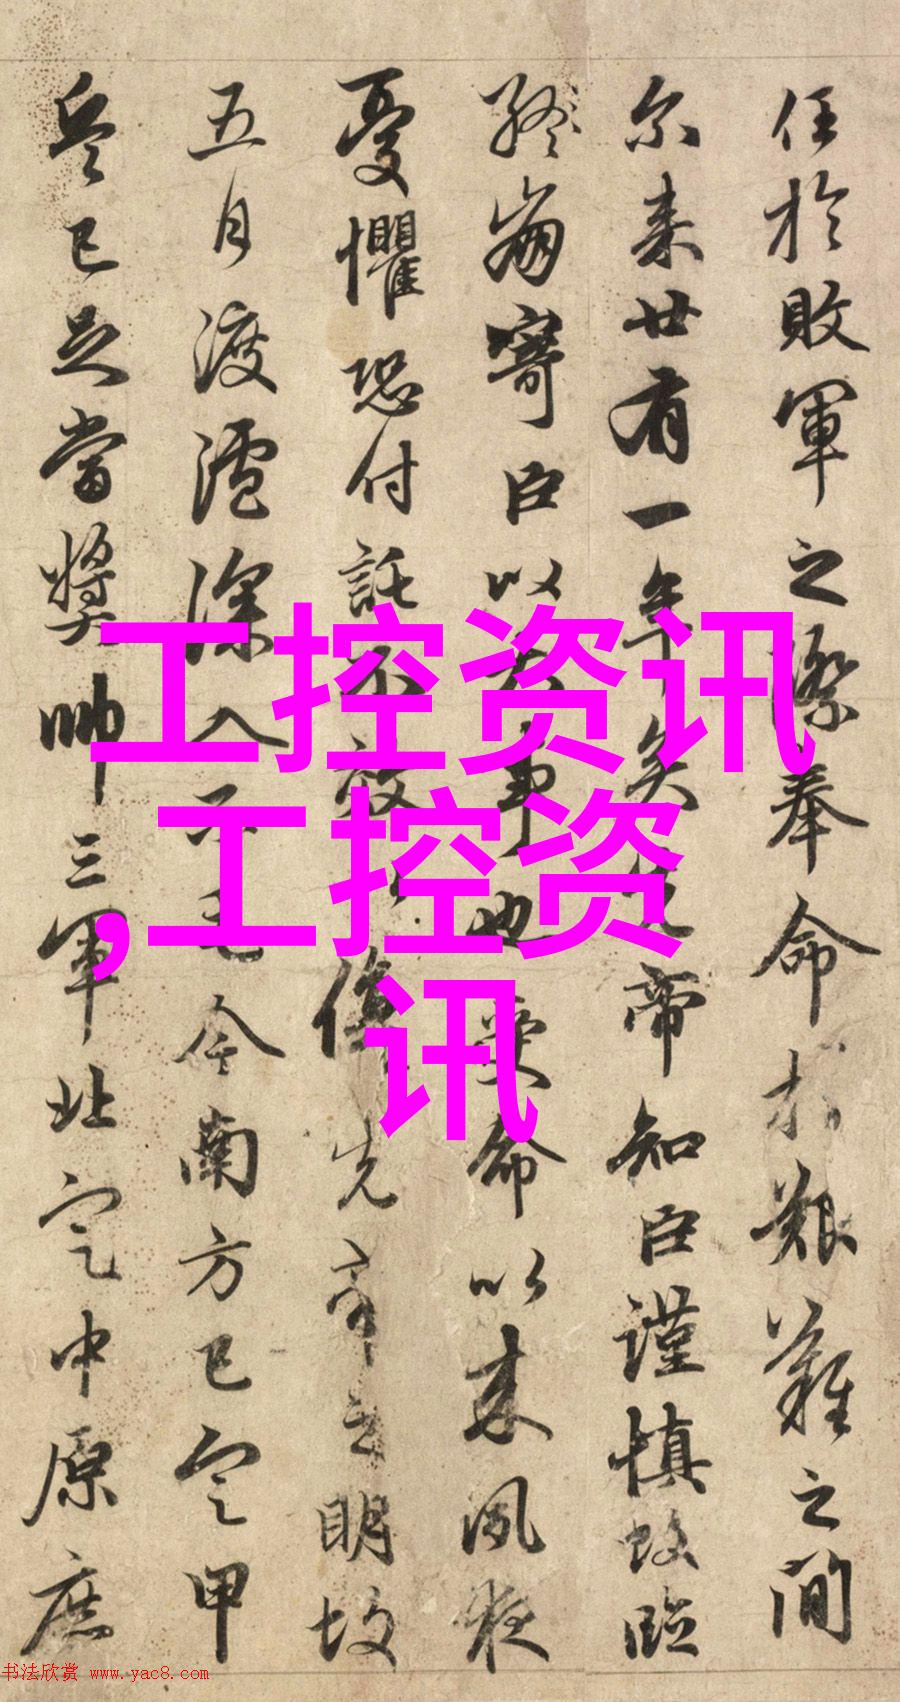 任於敗軍之際奉命於艱難之間
尓来廿有一年矣先帝知臣謹慎故臨
終崩寄臣以大事也受命以来夙夜
憂懼恐付託不效以傷先帝之明故
五月渡瀘深入不毛今南方已定甲
兵已足當奬帥三軍北定中原庶
工控资讯
,工控资
讯
书法欣赏 www.yac8.com